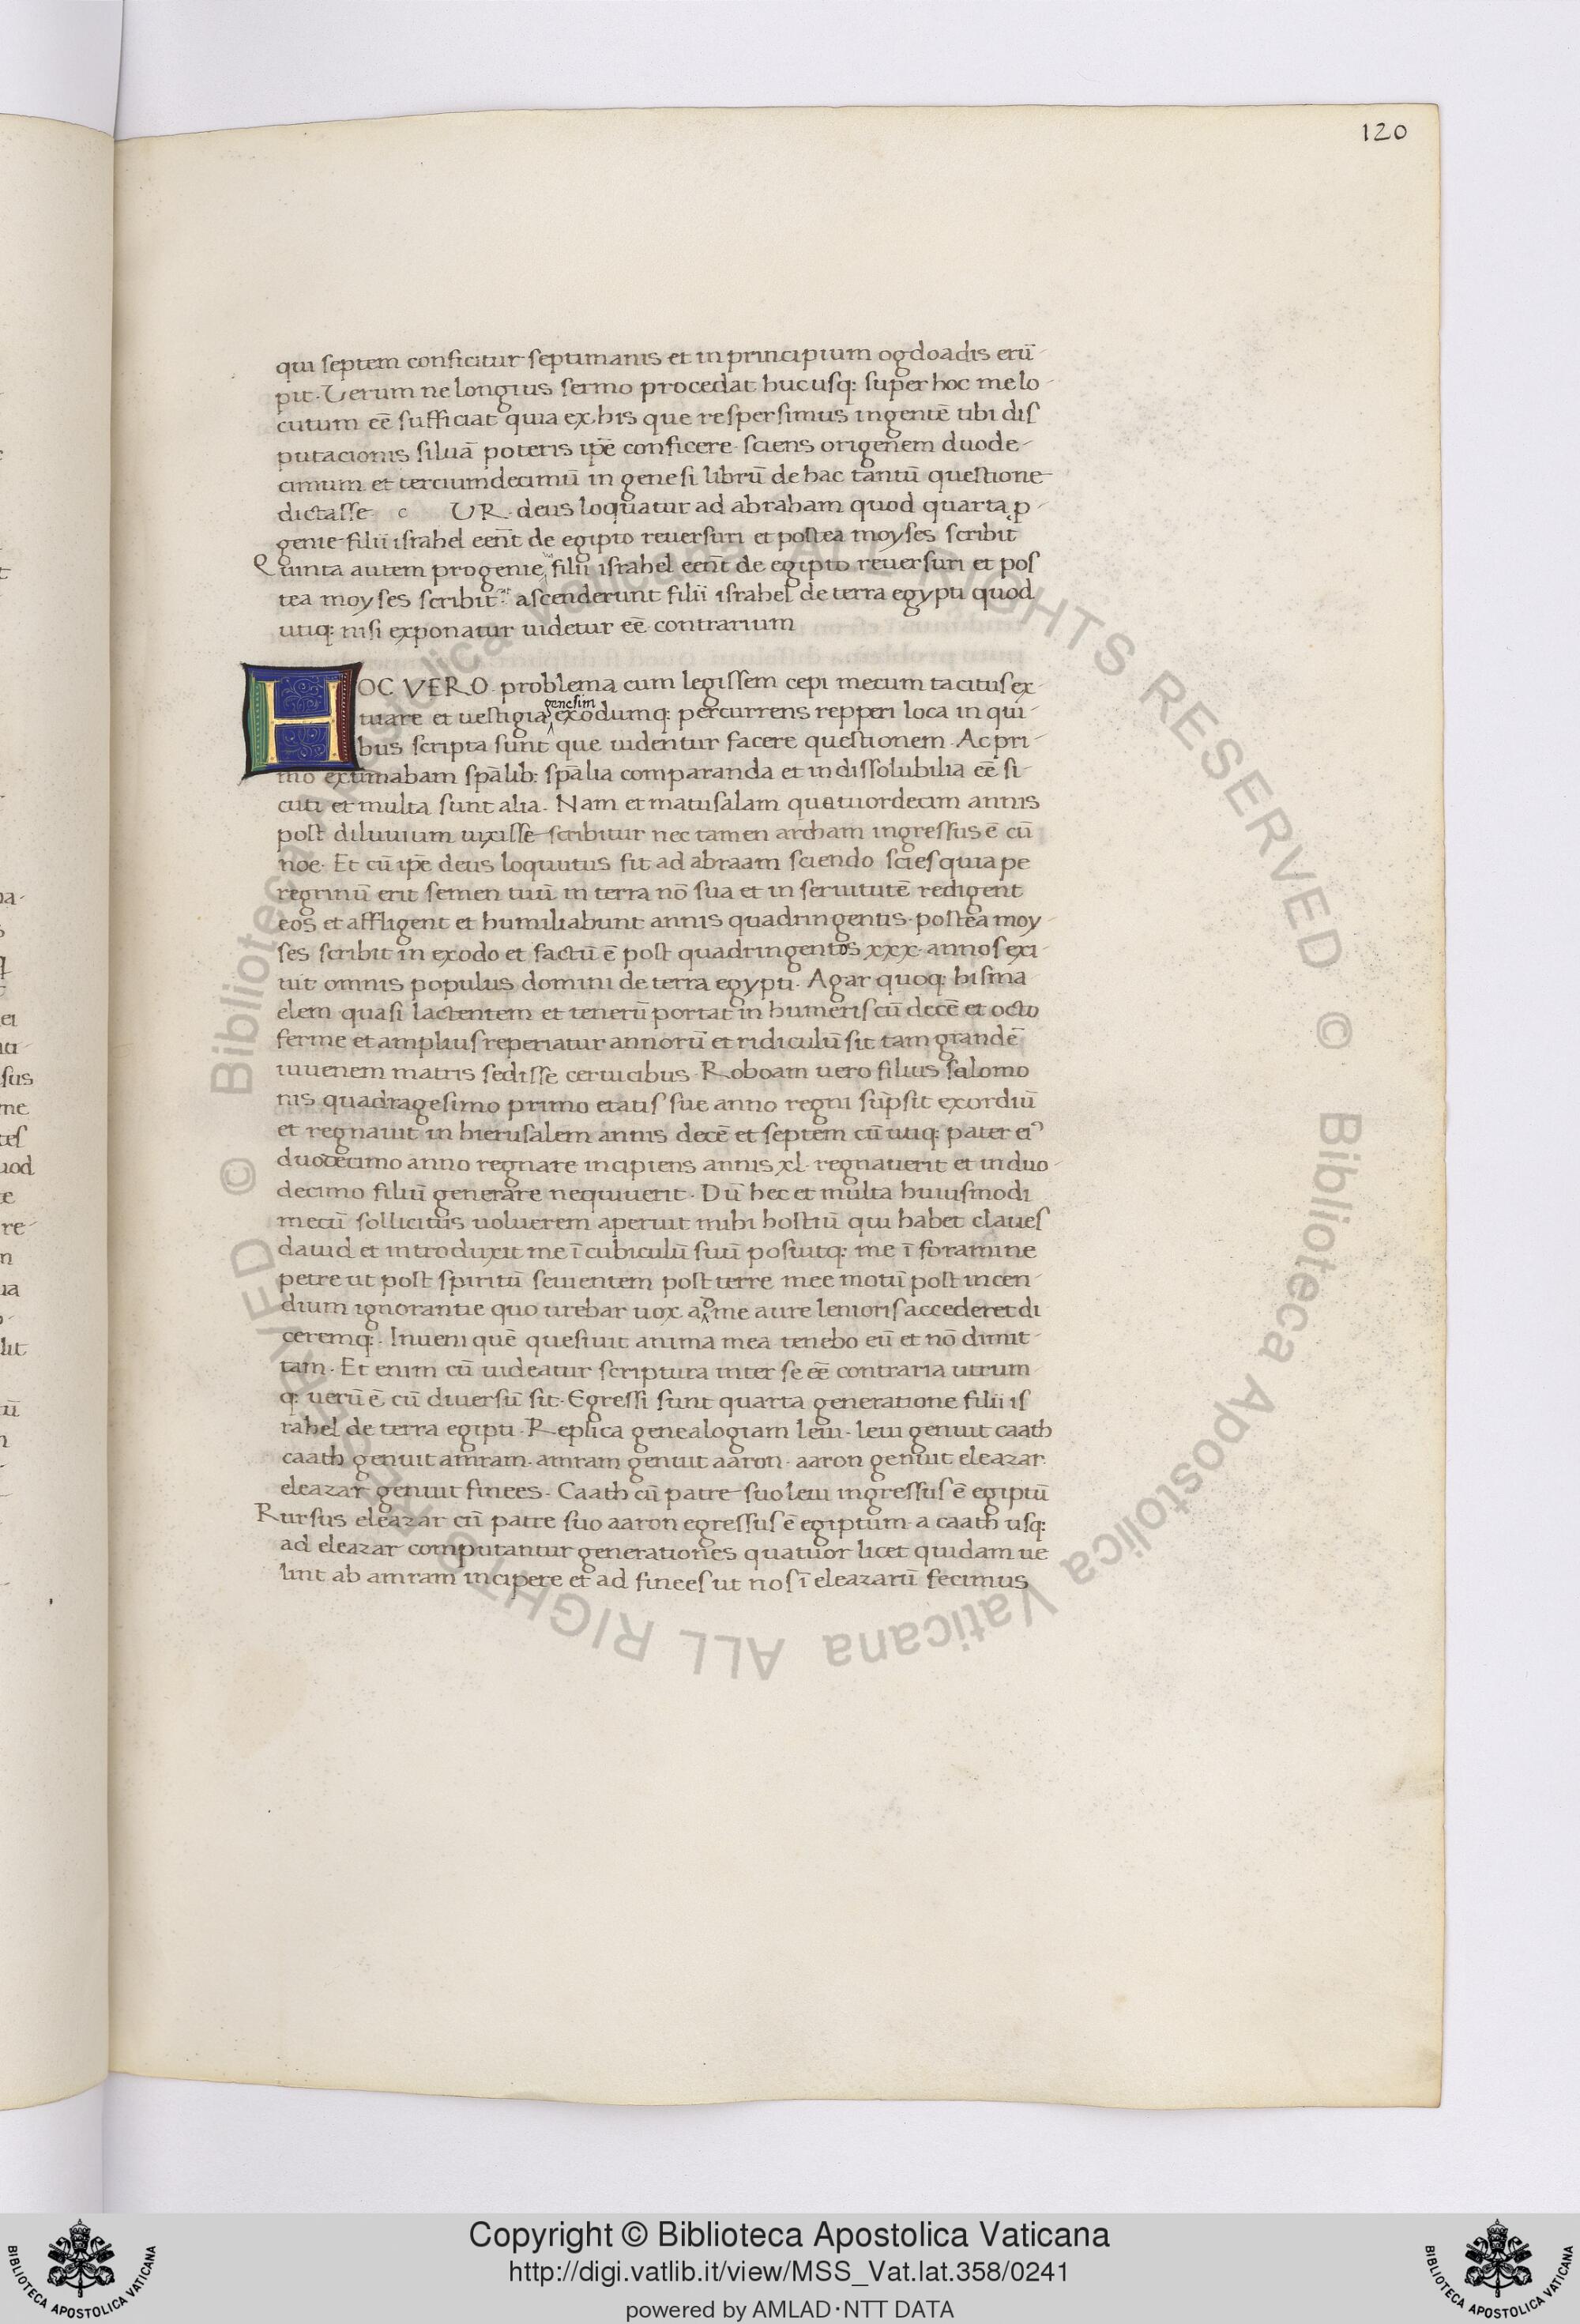 120
qui septem conficitur septimanis et in principium ogdoadis erū-
pit. Verum ne longius sermo procedat hucusq: super hoc me lo-
cutum eē sufficiat quia ex his que respersimus ingentē tibi dis
putacionis siluā poteris ip̄e conficere sciens origenem duode-
cimum et terciumdecimū in genesi librū de hac tantū questione
dictasse c UR. deus loquatur ad abraham quod quarta ꝓ-
genie filii israhel eent̄ de egipto reuersuri et postea moyses scribit
Quinta autem progenie filii israhel eent̄ de egipto reuersuri et pos
tea moyses scribit ascenderunt filii israhel de terra egypti quod
utiq: nisi exponatur uidetur eē contrarium
HOC VERO problema cum legissem cepi mecum tacitus ex-
tuare et uestigia genesim exodumq: percurrens repperi loca in qui-
bus scripta sunt que uidentur facere questionem. Ac pri-
mo extimabam sp̄alib: sp̄alia comparanda et indissolubilia eē si-
cuti et multa sunt alia. Nam et matusalam quatuordecim annis
post diluuium uixisse scribitur nec tamen archam ingressus ē cū
noe. Et cū ip̄e deus loquutus sit ad abraam sciendo scies quia pe
regrinū erit semen tuū in terra nō sua et in seruitutē redigent
eos et affligent et humiliabunt annis quadringentis. postea moy-
ses scribit in exodo et factū ē post quadringentos xxx. annos exi-
uit omnis populus domini de terra egypti. Agar quoq: hisma
elem quasi lactentem et tenerū portat in humeris cū decē et octo
ferme et amplius reperiatur annorū et ridiculū sit tam grandē
iuuenem matris sedisse ceruicibus. Roboam uero filius salomo
nis quadragesimo primo etatis sue anno regni sūpsit exordiū
et regnauit in hierusalem annis decē et septem cū utiq: pater ei᾽
duodecimo anno regnare incipiens annis xl. regnauerit et in duo-
decimo filiū generare nequiuerit. Dū hec et multa huiusmodi
mecū sollicitus uoluerem aperuit mihi hostiū qui habet claues
dauid et introduxit me ī cubiculū suū posuitq: me ī foramine
petre ut post spiritū seuientem post terre mee motū post incen-
dium ignorantie quo urebar uox ad me aure lenioris accederet di
ceremq:. Inueni quē quesiuit anima mea tenebo eū et nō dimit-
tam. Et enim cū uideatur scriptura inter se eē contraria utrum
q: uerū ē cū diuersū sit. Egressi sunt quarta generatione filii is
rahel de terra egipti. Replica genealogiam leui. leui genuit caath
caath genuit amram. amram genuit aaron. aaron genuit eleazar
eleazar genuit finees. Caath cū patre suo leui ingressus ē egiptū
Rursus eleazar cū patre suo aaron egressus ē egiptum. a caath usq:
ad eleazar computantur generationes quatuor licet quidam ue
lint ab amram incipere et ad finees ut nos ī eleazarū fecimus
Copyright © Biblioteca Apostolica Vaticana
http://digi.vatlib.it/view/MSS_Vat.lat.358/0241
powered by AMLAD·NTT DATA